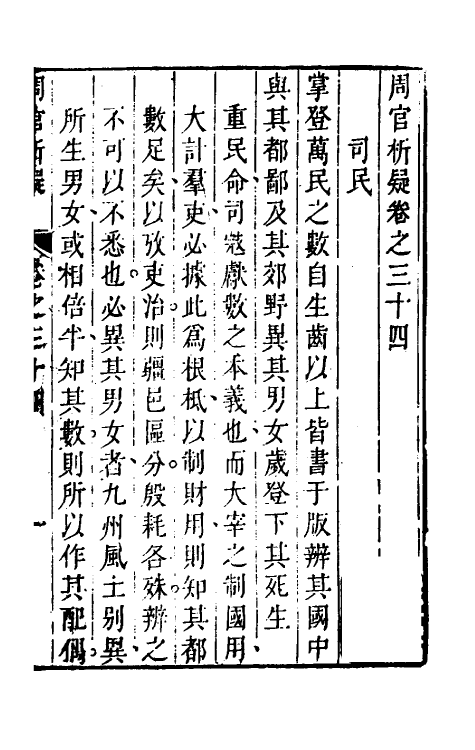 周官析疑卷之三十四
司民
掌登萬民之數自生齒以上皆書于版辨其國中
與其都鄙及其郊野異其男女歲登下其死生
重民命司𡨥獻數之本義也而大宰之制國用、
大計羣吏必據此爲根柢以制財用則知其都
數足矣、以攷吏治則疆邑區分。殷耗各殊。辨之
不可以不悉也。必異其男女者、九州風土別異、
所生男女、或相倍半、知其數。則所以作其配偶。
周官析疑 卷之三十四 一